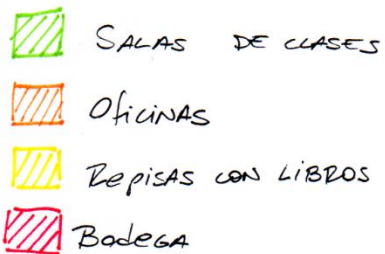 SALAS DE CLASES
OficiNAS
RepisAS CON LiBROS
BodeGA